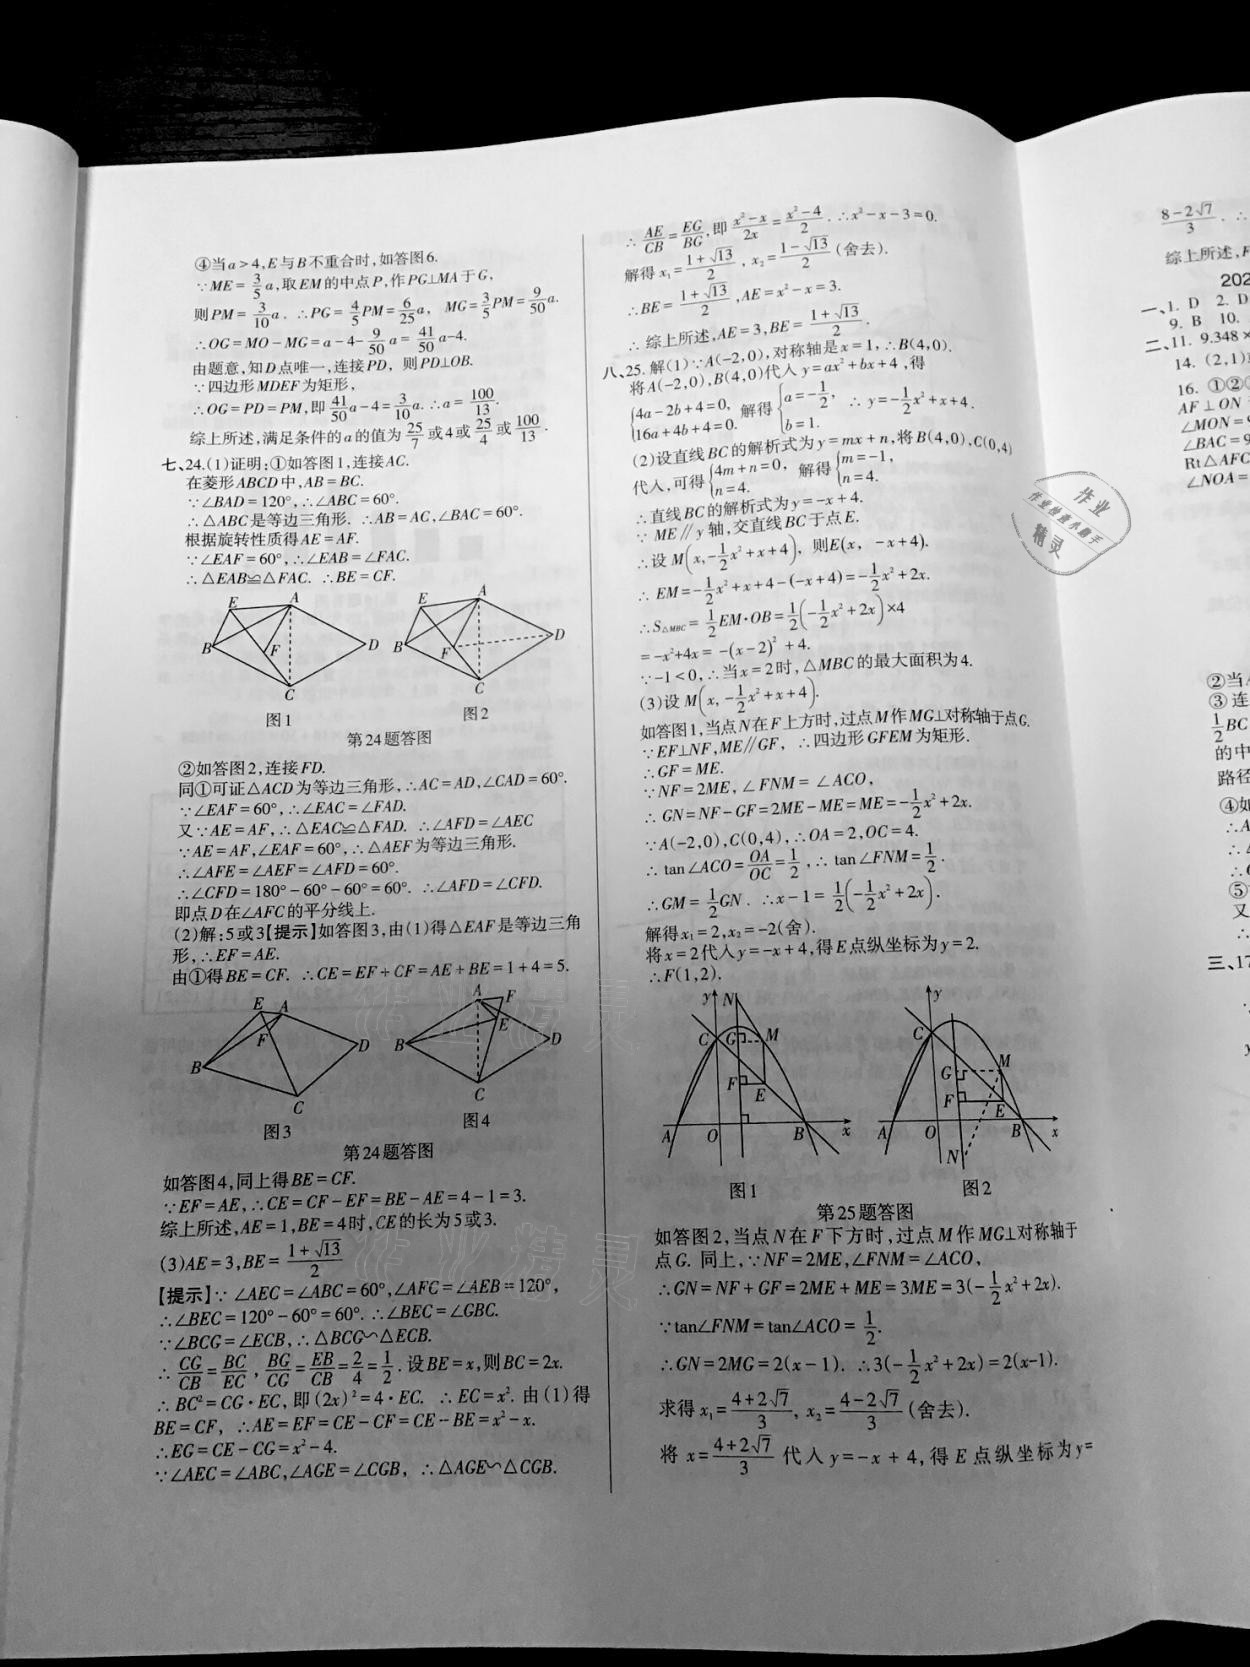 ④当a>4,E与B不重合时,如答图6.
∵ME=3/5a,取EM的中点P,作PG⊥MA于G,
则PM=3/10a. ∴PG=4/5PM=6/25a, MG=3/5PM=9/50a.
∴OG=MO-MG=a-4-9/50a=41/50a-4.
由题意,知D点唯一,连接PD, 则PD⊥OB.
∵四边形MDEF为矩形,
∴OG=PD=PM,即41/50a-4=3/10a. ∴a=100/13.
综上所述,满足条件的a的值为25/7或4或25/4或100/13.
七、24.(1)证明:①如答图1,连接AC.
在菱形ABCD中,AB=BC.
∵∠BAD=120°,∴∠ABC=60°.
∴△ABC是等边三角形. ∴AB=AC,∠BAC=60°.
根据旋转性质得AE=AF.
∵∠EAF=60°,∴∠EAB=∠FAC.
∴△EAB≌△FAC. ∴BE=CF.
E A B F D C
图1
E A B F D C
图2
第24题答图
②如答图2,连接FD.
同①可证△ACD为等边三角形,∴AC=AD,∠CAD=60°.
∵∠EAF=60°,∴∠EAC=∠FAD.
又∵AE=AF,∴△EAC≌△FAD. ∴∠AFD=∠AEC
∵AE=AF,∠EAF=60°,∴△AEF为等边三角形.
∴∠AFE=∠AEF=∠AFD=60°.
∴∠CFD=180°-60°-60°=60°. ∴∠AFD=∠CFD.
即点D在∠AFC的平分线上.
(2)解:5或3【提示】如答图3,由(1)得△EAF是等边三角
形,∴EF=AE.
由①得BE=CF. ∴CE=EF+CF=AE+BE=1+4=5.
E A F B D C
图3
A F E B D C
图4
第24题答图
如答图4,同上得BE=CF.
∵EF=AE,∴CE=CF-EF=BE-AE=4-1=3.
综上所述,AE=1,BE=4时,CE的长为5或3.
(3)AE=3,BE=(1+√13)/2
【提示】∵∠AEC=∠ABC=60°,∠AFC=∠AEB=120°,
∴∠BEC=120°-60°=60°. ∴∠BEC=∠GBC.
∵∠BCG=∠ECB,∴△BCG∽△ECB.
∴CG/CB=BC/EC, BG/CG=EB/CB=2/4=1/2. 设BE=x,则BC=2x.
∴BC²=CG·EC, 即(2x)²=4·EC. ∴EC=x². 由(1)得
BE=CF, ∴AE=EF=CE-CF=CE-BE=x²-x.
∴EG=CE-CG=x²-4.
∵∠AEC=∠ABC,∠AGE=∠CGB, ∴△AGE∽△CGB.
∴AE/CB=EG/BG,即(x²-x)/2x=(x²-4)/2. ∴x²-x-3=0.
解得x₁=(1+√13)/2, x₂=(1-√13)/2(舍去).
∴BE=(1+√13)/2,AE=x²-x=3.
∴综上所述,AE=3,BE=(1+√13)/2.
八、25.解(1)∵A(-2,0),对称轴是x=1,∴B(4,0).
将A(-2,0),B(4,0)代入y=ax²+bx+4,得
{4a-2b+4=0, 16a+4b+4=0. 解得{a=-1/2, b=1. ∴y=-1/2x²+x+4.
(2)设直线BC的解析式为y=mx+n,将B(4,0),C(0,4)
代入,可得{4m+n=0, n=4. 解得{m=-1, n=4.
∴直线BC的解析式为y=-x+4.
∵ME∥y轴,交直线BC于点E.
∴设M(x,-1/2x²+x+4), 则E(x, -x+4).
∴EM=-1/2x²+x+4-(-x+4)=-1/2x²+2x.
∴S△MBC=1/2EM·OB=1/2(-1/2x²+2x)×4
=-x²+4x=-(x-2)²+4.
∵-1<0,∴当x=2时,△MBC的最大面积为4.
(3)设M(x, -1/2x²+x+4).
如答图1,当点N在F上方时,过点M作MG⊥对称轴于点G.
∵EF⊥NF,ME∥GF, ∴四边形GFEM为矩形.
∴GF=ME.
∵NF=2ME,∠FNM=∠ACO,
∴GN=NF-GF=2ME-ME=ME=-1/2x²+2x.
∵A(-2,0),C(0,4),∴OA=2,OC=4.
∴tan∠ACO=OA/OC=1/2,∴tan∠FNM=1/2.
∴GM=1/2GN. ∴x-1=1/2(-1/2x²+2x).
解得x₁=2,x₂=-2(舍).
将x=2代入y=-x+4,得E点纵坐标为y=2.
∴F(1,2).
y N C G M F E A O B x
图1
y C M G F E A O B x N
图2
第25题答图
如答图2,当点N在F下方时,过点M作MG⊥对称轴于
点G. 同上,∵NF=2ME,∠FNM=∠ACO,
∴GN=NF+GF=2ME+ME=3ME=3(-1/2x²+2x).
∵tan∠FNM=tan∠ACO=1/2.
∴GN=2MG=2(x-1). ∴3(-1/2x²+2x)=2(x-1).
求得x₁=(4+2√7)/3, x₂=(4-2√7)/3(舍去).
将x=(4+2√7)/3代入y=-x+4,得E点纵坐标为y=
(8-2√7)/3. ∴
综上所述,F
202
一、1. D 2. D
9. B 10.
二、11. 9.348×
14. (2,1)
16. ①②
AF⊥ON
∠MON=
∠BAC=9
Rt△AFC
∠NOA=
作业
作业检查小助手
精灵
②当
③连
1/2BC
的中
路径
④如
∴A
∴∠
⑤
又
∴
三、17
作业精灵
作业精灵